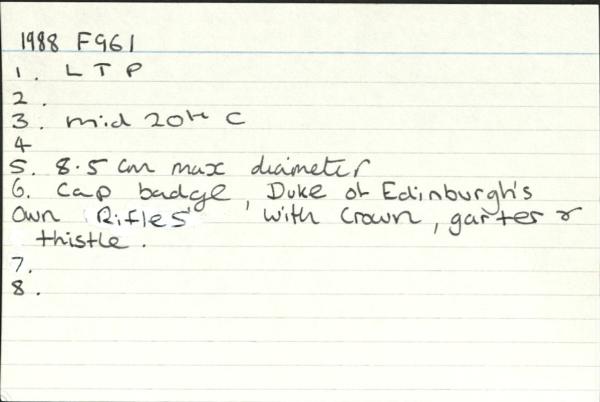 1988 F961
1. L T P
2.
3. mid 20th C
4
5. 8.5 cm max diameter
6. Cap badge, Duke of Edinburgh's
Own Rifles with Crown, garter &
thistle.
7.
8.